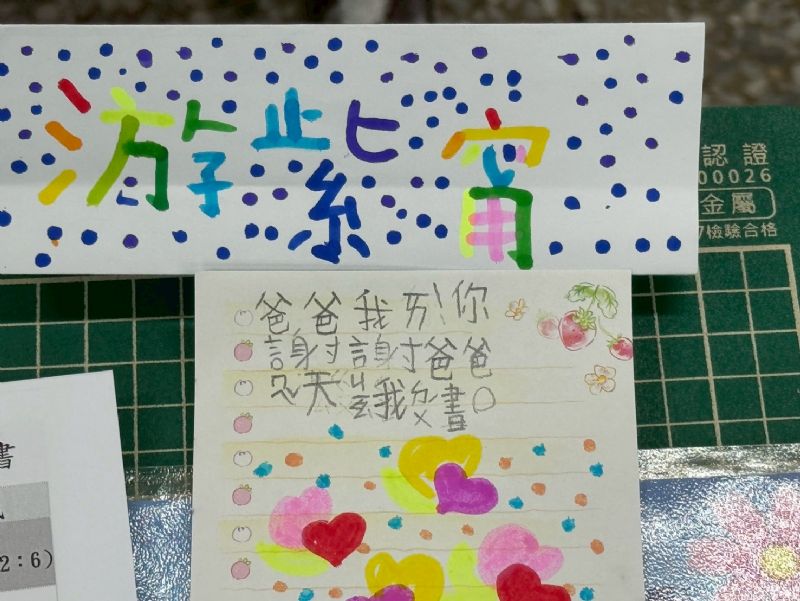 游紫甯
認證
00026
金屬
檢驗合格
爸爸我ㄞˋ你
謝謝爸爸
天 我
書
2:6)